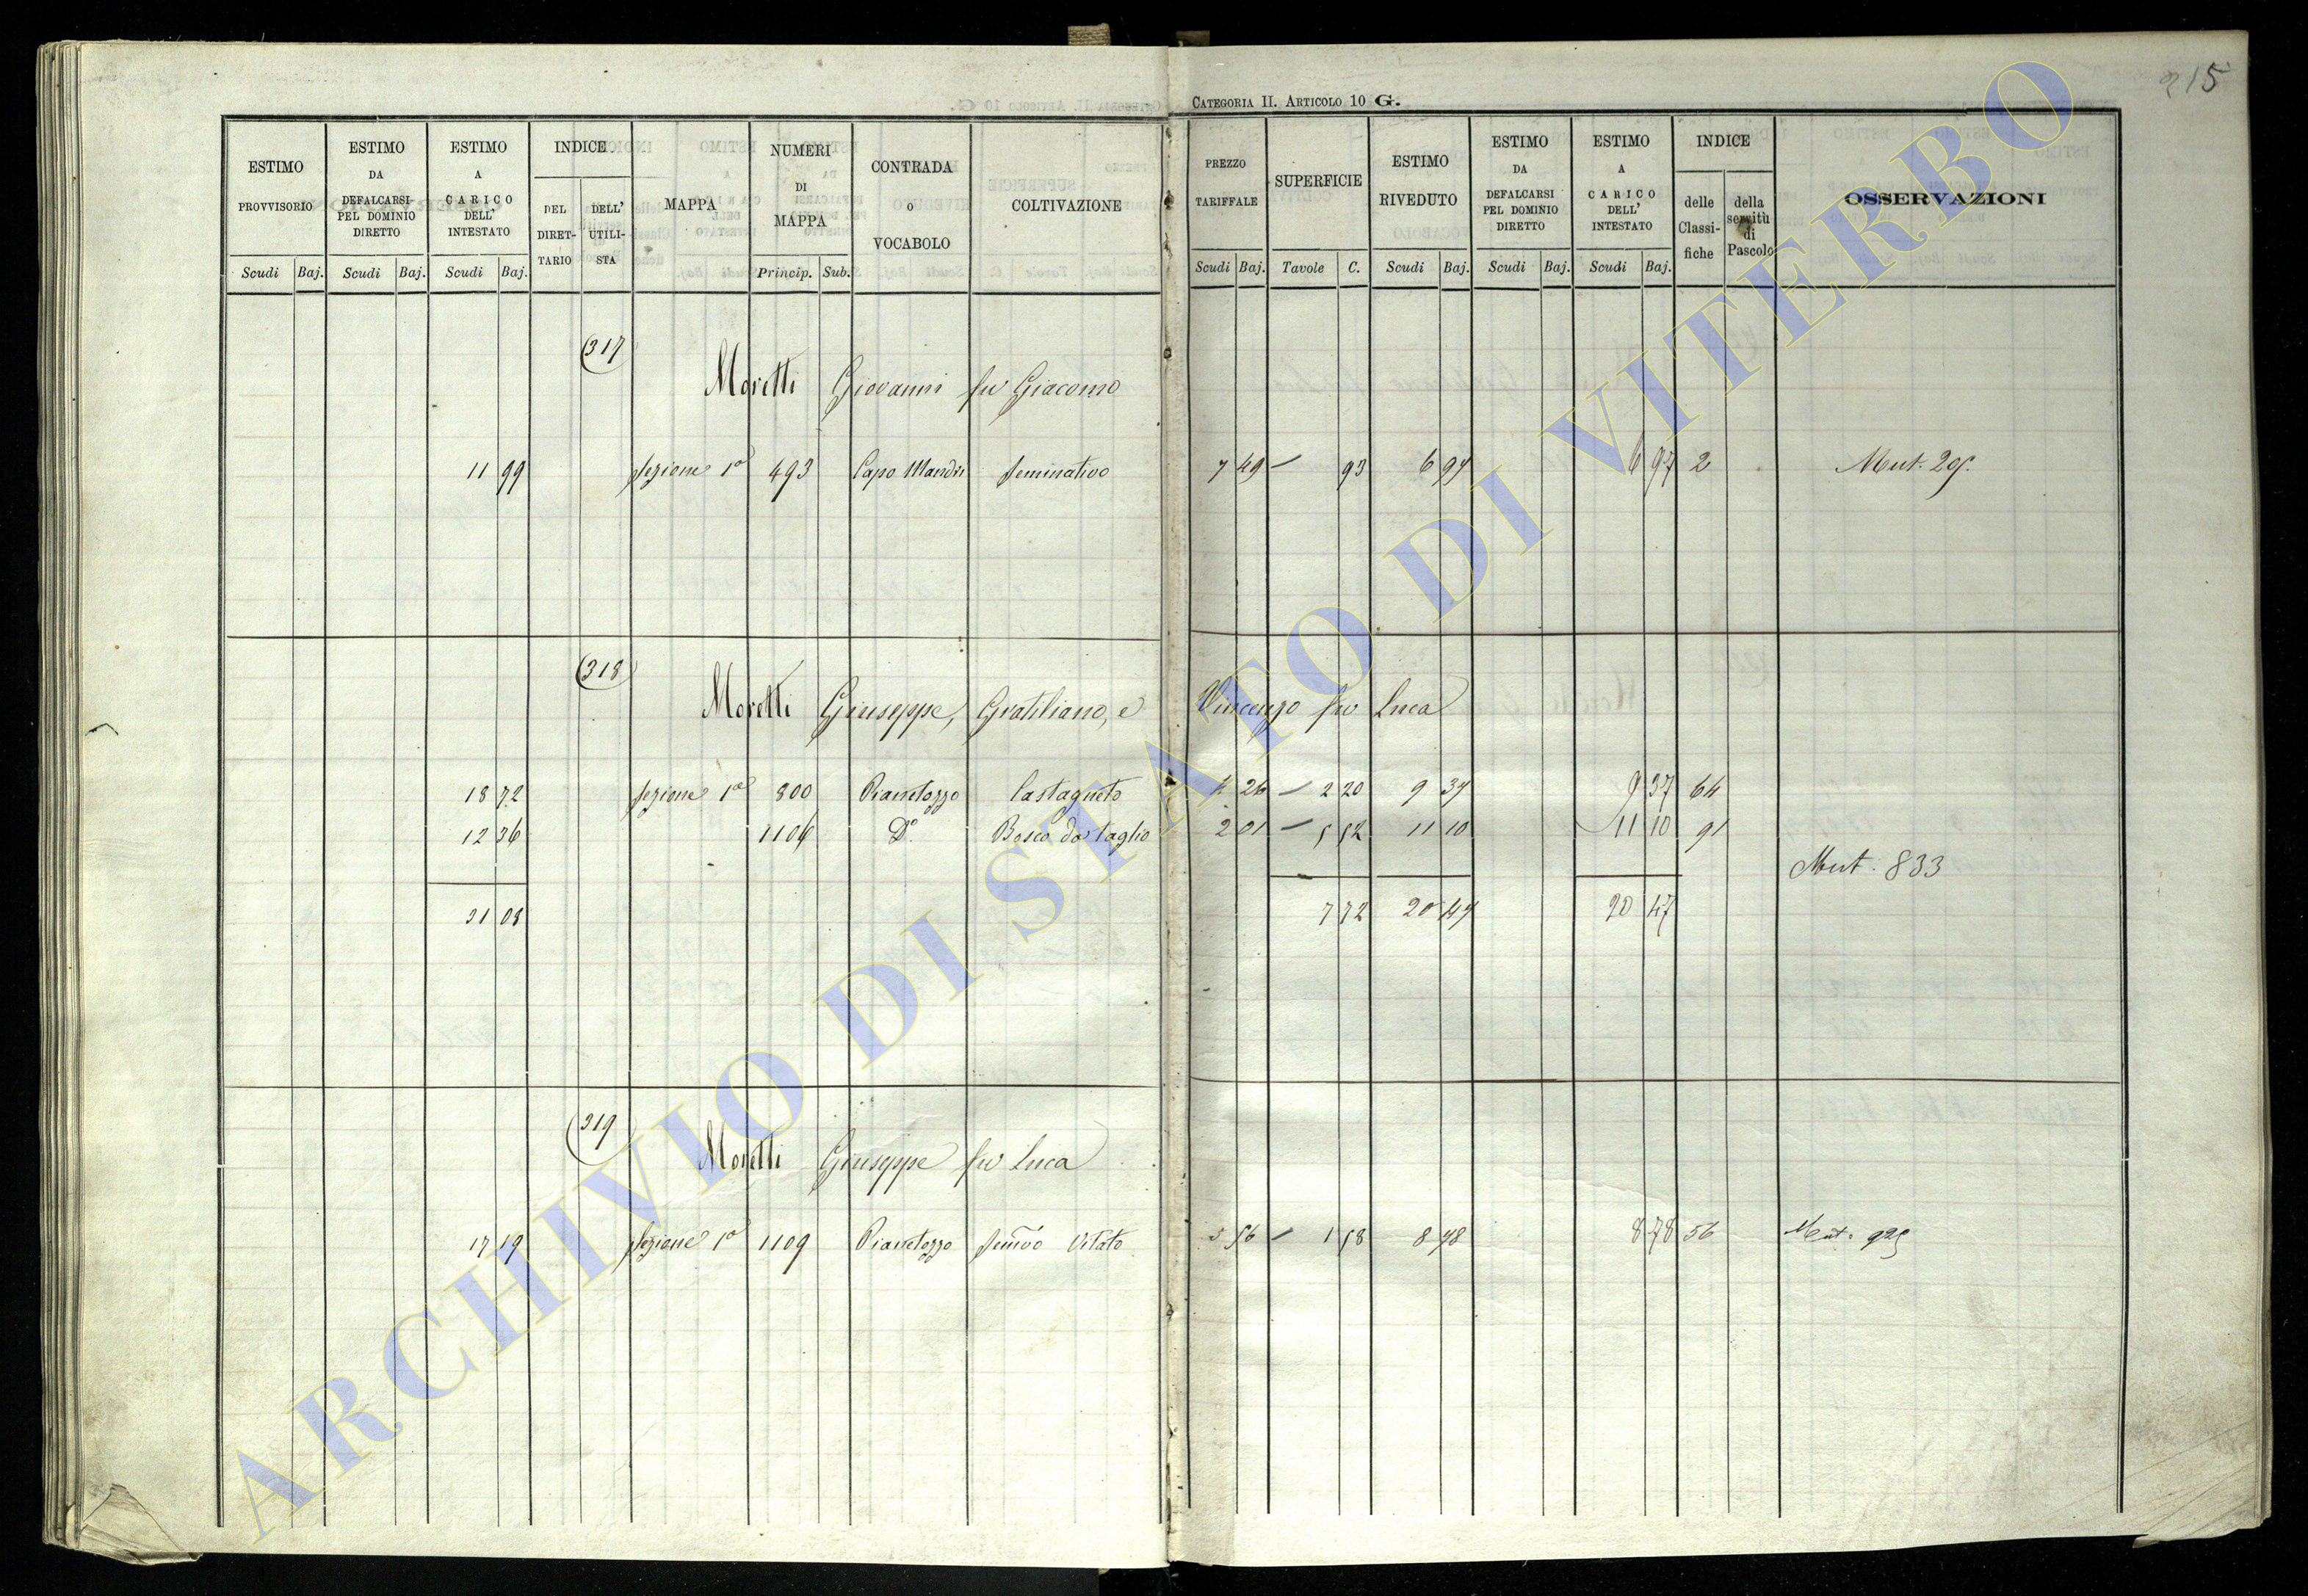 215
CATEGORIA II. ARTICOLO 10 G.
ESTIMO PROVVISORIO
ESTIMO DA DEFALCARSI PEL DOMINIO DIRETTO
ESTIMO A CARICO DELL' INTESTATO
INDICE
DEL DIRET-TARIO
DELL' UTILI-STA
MAPPA
NUMERI DI MAPPA
CONTRADA o VOCABOLO
COLTIVAZIONE
PREZZO TARIFFALE
SUPERFICIE
ESTIMO RIVEDUTO
ESTIMO DA DEFALCARSI PEL DOMINIO DIRETTO
ESTIMO A CARICO DELL' INTESTATO
INDICE
delle Classi-fiche
della servitù di Pascolo
OSSERVAZIONI
Scudi Baj. Scudi Baj. Scudi Baj. Princip. Sub. Scudi Baj. Tavole C. Scudi Baj. Scudi Baj. Scudi Baj.
317
Moretti Giovanni fu Giacomo
11 99 Sezione 1a 493 Capo Mandri Seminativo 7 49 — 93 6 97 6 97 2
318
Moretti Giuseppe, Gratiliano, e Vincenzo fu Luca
18 72 Sezione 1a 800 Pianetozzo Castagneto 4 26 — 2 20 9 37 9 37 64
12 36 1106 Do. Bosco da taglio 2 01 — 5 52 11 10 11 10 91
Mut. 833
31 08 7 72 20 47 20 47
319
Moretti Giuseppe fu Luca
17 19 Sezione 1a 1109 Pianetozzo Semvo Vitato 5 56 — 1 58 8 78 8 78 56 Mut. 925
ARCHIVIO DI STATO DI VITERBO